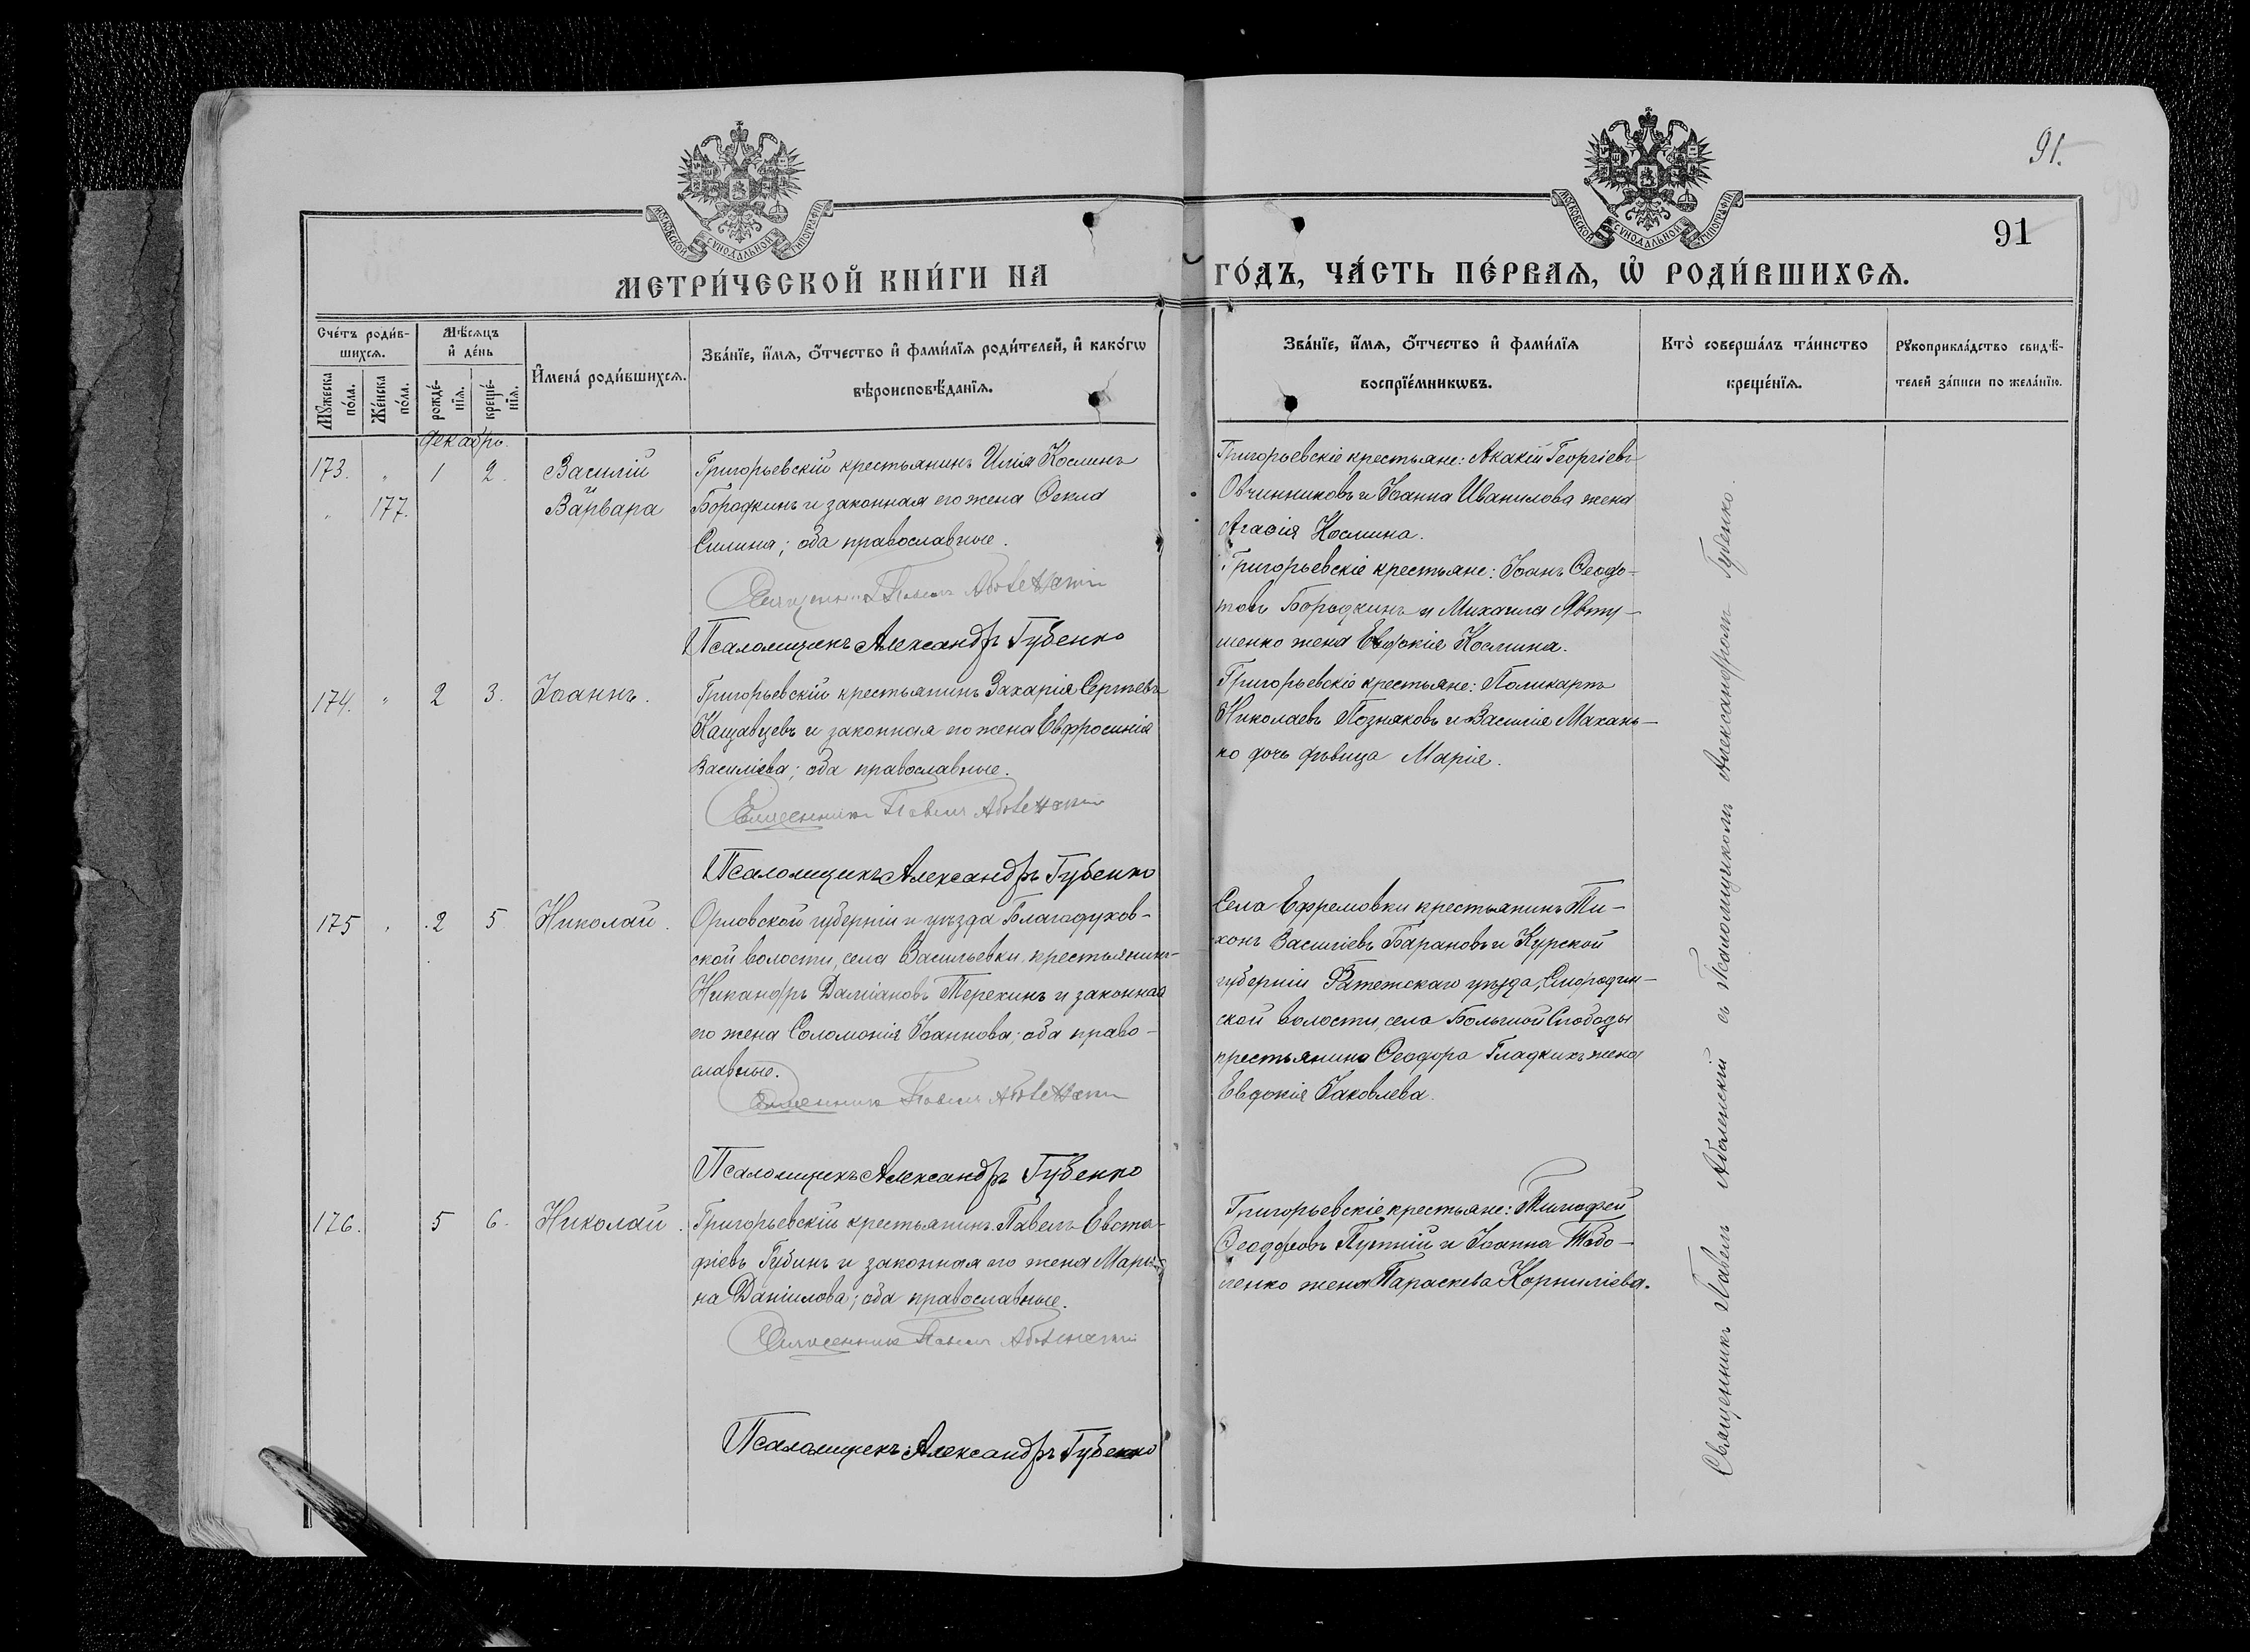 91.
91
МОСКОВСКОЙ СѴНОДАЛЬНОЙ ТИПОГРАФІИ
МОСКОВСКОЙ СѴНОДАЛЬНОЙ ТИПОГРАФІИ
МЕТРИ́ЧЕСКОЙ КНИ́ГИ НА
ГО́ДЪ, ЧА́СТЬ ПЕ́РВАѦ, Ѡ҆ РОДИ́ВШИХСѦ.
Сче́тъ роди́в-
шихсѧ.
Мꙋ́жеска по́ла.
Же́нска по́ла.
Мѣ́сѧцъ
и҆ де́нь
рожде́-нїѧ.
креще́-нїѧ.
И҆мена̀ роди́вшихсѧ.
Зва́нїе, и҆́мѧ, ѻ҆́тчество и҆ фами́лїѧ роди́телей, и҆ како́гѡ
вѣроисповѣ́данїѧ.
Зва́нїе, и҆́мѧ, ѻ҆́тчество и҆ фами́лїѧ
воспрїе́мникѡвъ.
Кто̀ соверша́лъ та́инство
креще́нїѧ.
Рꙋкоприкла́дство свидѣ́-
телей за́писи по жела́нїю.
Декабрь.
173. " 1 2. Василій
и
" 177. Варвара
Григорьевскій крестьянинъ Илія Косминъ
Бородкинъ и законная его жена Ѳекла
Силина; оба православные.
Священникъ Павелъ Аболенскій
Псаломщикъ Александръ Губенко
Григорьевскіе крестьяне: Акакій Георгіевъ
Овчинниковъ и Іоанна Иванилова жена
Агаѳія Космина.
Григорьевскіе крестьяне: Іоанъ Ѳеодо-
товъ Бородкинъ и Михаила Явту-
шенко жена Евдокія Космина.
174. " 2 3. Іоаннъ.
Григорьевскій крестьянинъ Захарія Сергѣевъ
Кащавцевъ и законная его жена Евфросинія
Василіева; оба православные.
Священникъ Павелъ Аболенскій
Псаломщикъ Александръ Губенко
Григорьевскіе крестьяне: Поликарпъ
Николаевъ Позняковъ и Василія Махань-
ко дочь дѣвица Марія.
175 " 2 5 Николай.
Орловской губерніи и уѣзда Благодухов-
ской волости, села Васильевки, крестьянинъ
Никандръ Даміановъ Терехинъ и законная
его жена Соломонія Іоаннова; оба право-
славные.
Священникъ Павелъ Аболенскій
Псаломщикъ Александръ Губенко
Села Ефремовки крестьянинъ Ти-
хонъ Василіевъ Барановъ и Курской
губерніи Фатежскаго уѣзда, Смородин-
ской волости, села Большой Слободы
крестьянина Ѳеодора Гладкихъ жена
Евдокія Іаковлева.
176. 5 6. Николай.
Григорьевскій крестьянинъ Павелъ Евста-
фіевъ Губинъ и законная его жена Мари-
на Даніилова; оба православные.
Священникъ Павелъ Аболенскій
Псаломщикъ Александръ Губенко
Григорьевскіе крестьяне: Тимофей
Ѳеодоровъ и Іоанна
жена Параскева Корниліева.
Священникъ Павелъ Аболенскій съ Псаломщикомъ Александромъ Губенко.